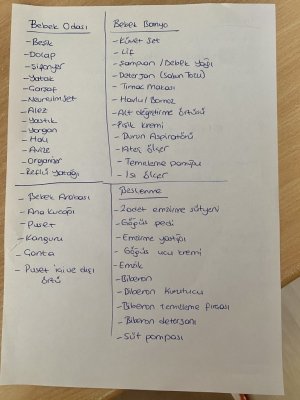 Bebek Odası
- Beşik
- Dolap
- Şifonyer
- Yatak
- Çarşaf
- Nevresim Set
- Alez
- Yastık
- Yorgan
- Halı
- Avize
- Organizer
- Reflü Yatağı
Bebek Banyo
- Küvet Set
- Lif
- Şampuan / Bebek Yağı
- Deterjan (Sabun Tozu)
- Tırnak Makası
- Havlu / Bornoz
- Alt değiştirme örtüsü
- Pişik kremi
- Burun Aspiratörü
- Ateş ölçer
- Temizleme pamuğu
- Isı ölçer
- Bebek Arabası
- Ana Kucağı
- Puset
- Kanguru
- Çanta
- Puset içi ve dışı örtü
Beslenme
- 2 adet emzirme sütyeni
- Göğüs pedi
- Emzirme yastığı
- Göğüs ucu kremi
- Emzik
- Biberon
- Biberon kurutucu
- Biberon temizleme fırçası
- Biberon deterjanı
- Süt pompası